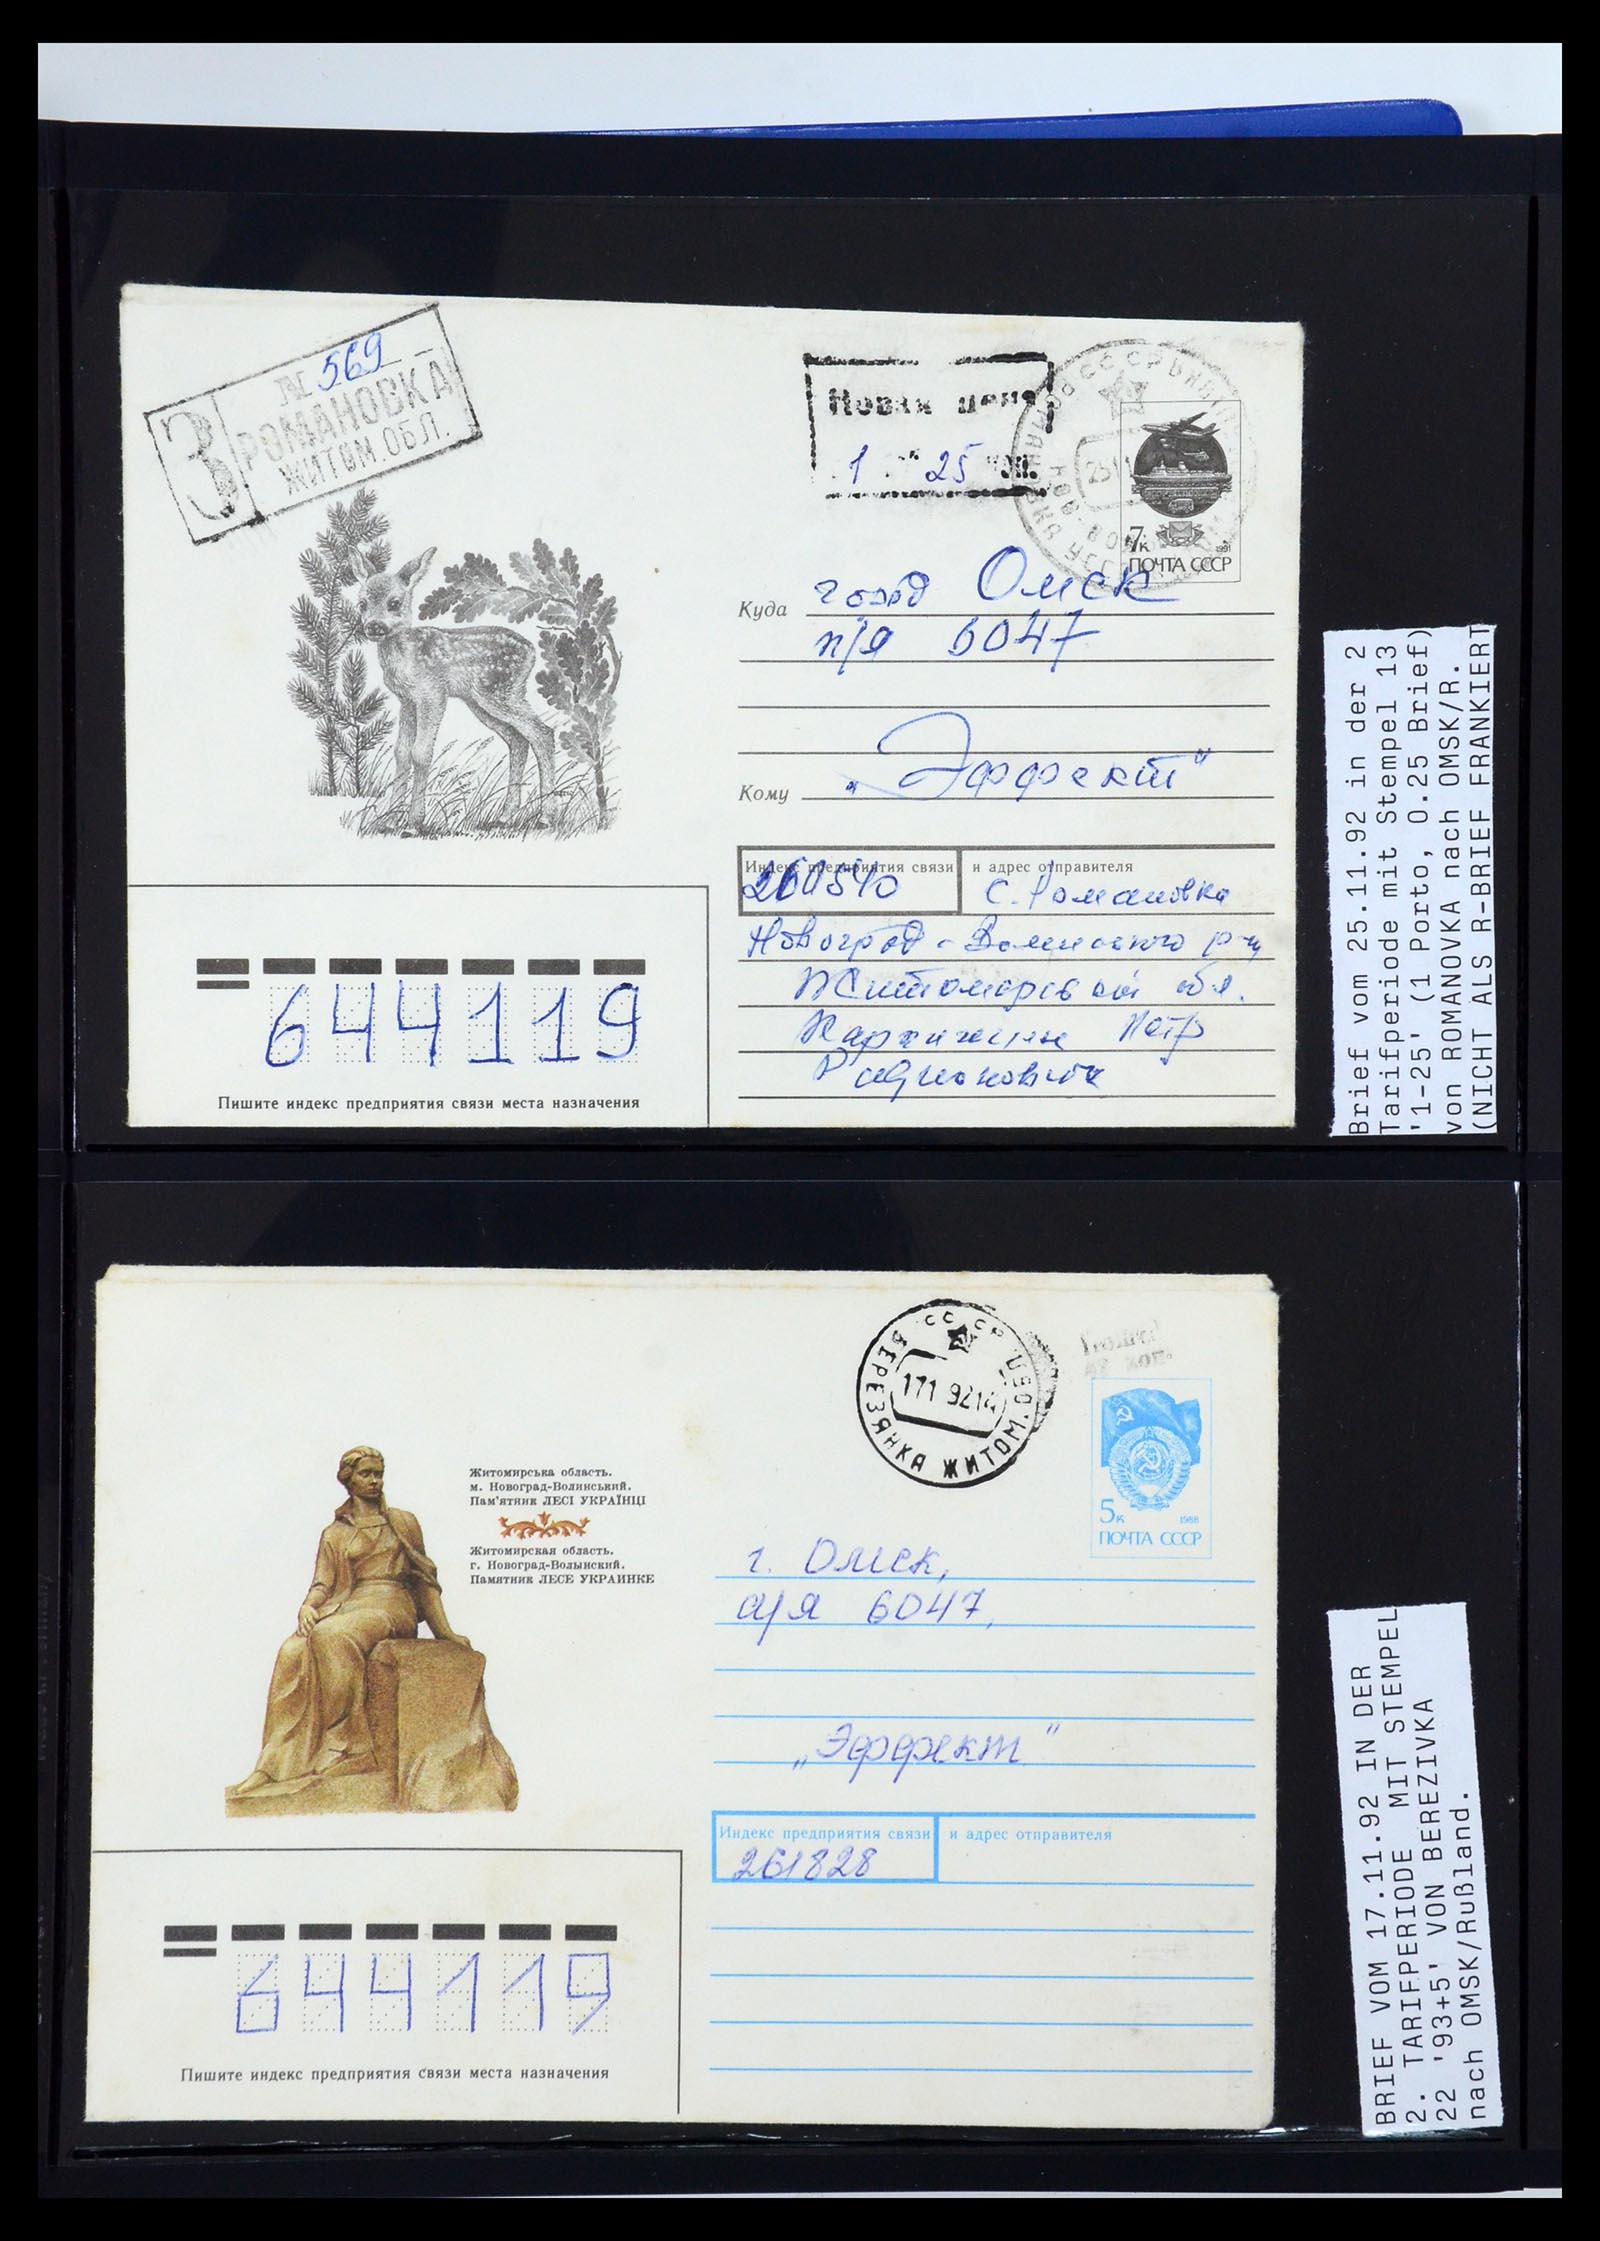 № 569
З РОМАНОВКА
ЖИТОМ. ОБЛ.
Новая цена
1 25
7к
1991
ПОЧТА СССР
Куда город Омск
п/я 6047
Кому „Эффект"
Индекс предприятия связи и адрес отправителя
260540 с. Романовка
Новоград-Волинского р-н
Житомирской обл.
Петр
644119
Пишите индекс предприятия связи места назначения
Brief vom 25.11.92 in der 2
Tarifperiode mit Stempel 13
'1-25' (1 Porto, 0.25 Brief)
von ROMANOVKA nach OMSK/R.
(NICHT ALS R-BRIEF FRANKIERT
СССР
БЕРЕЗЯНКА ЖИТОМ. ОБЛ.
5к
1988
ПОЧТА СССР
Житомирська область.
м. Новоград-Волинський.
Пам'ятник ЛЕСІ УКРАЇНЦІ
Житомирская область.
г. Новоград-Волынский.
Памятник ЛЕСЕ УКРАИНКЕ
г. Омск,
а/я 6047,
„Эффект"
Индекс предприятия связи и адрес отправителя
261828
644119
Пишите индекс предприятия связи места назначения
BRIEF VOM 17.11.92 IN DER
2. TARIFPERIODE MIT STEMPEL
22 '93+5' VON BEREZIVKA
nach OMSK/Rußland.